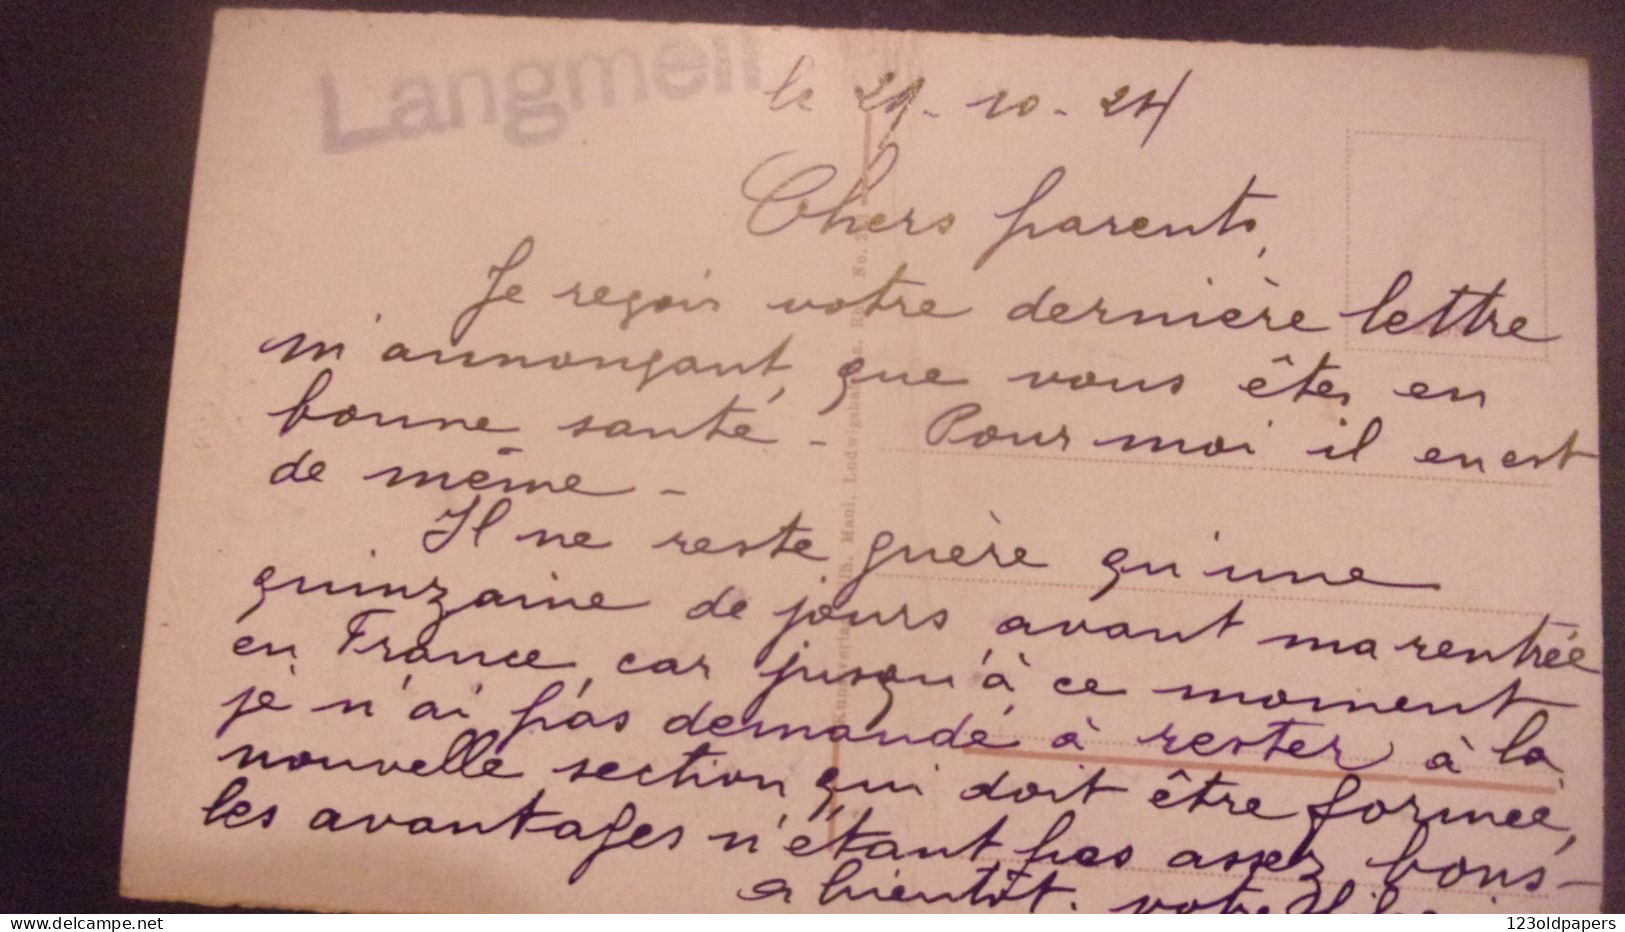 Langmeil
le 29-10-24
Chers parents,
Je reçois votre dernière lettre
m'annonçant, que vous êtes en
bonne santé - Pour moi il en est
de même -
Il ne reste guère qu'une
quinzaine de jours avant ma rentrée
en France, car jusqu'à ce moment
je n'ai pas demandé à rester à la
nouvelle section qui doit être formée,
les avantages n'étant pas assez bons -
a bientôt. votre
Maul, Ludwigshafen a. Rh. No.
delcampe.net
123oldpapers